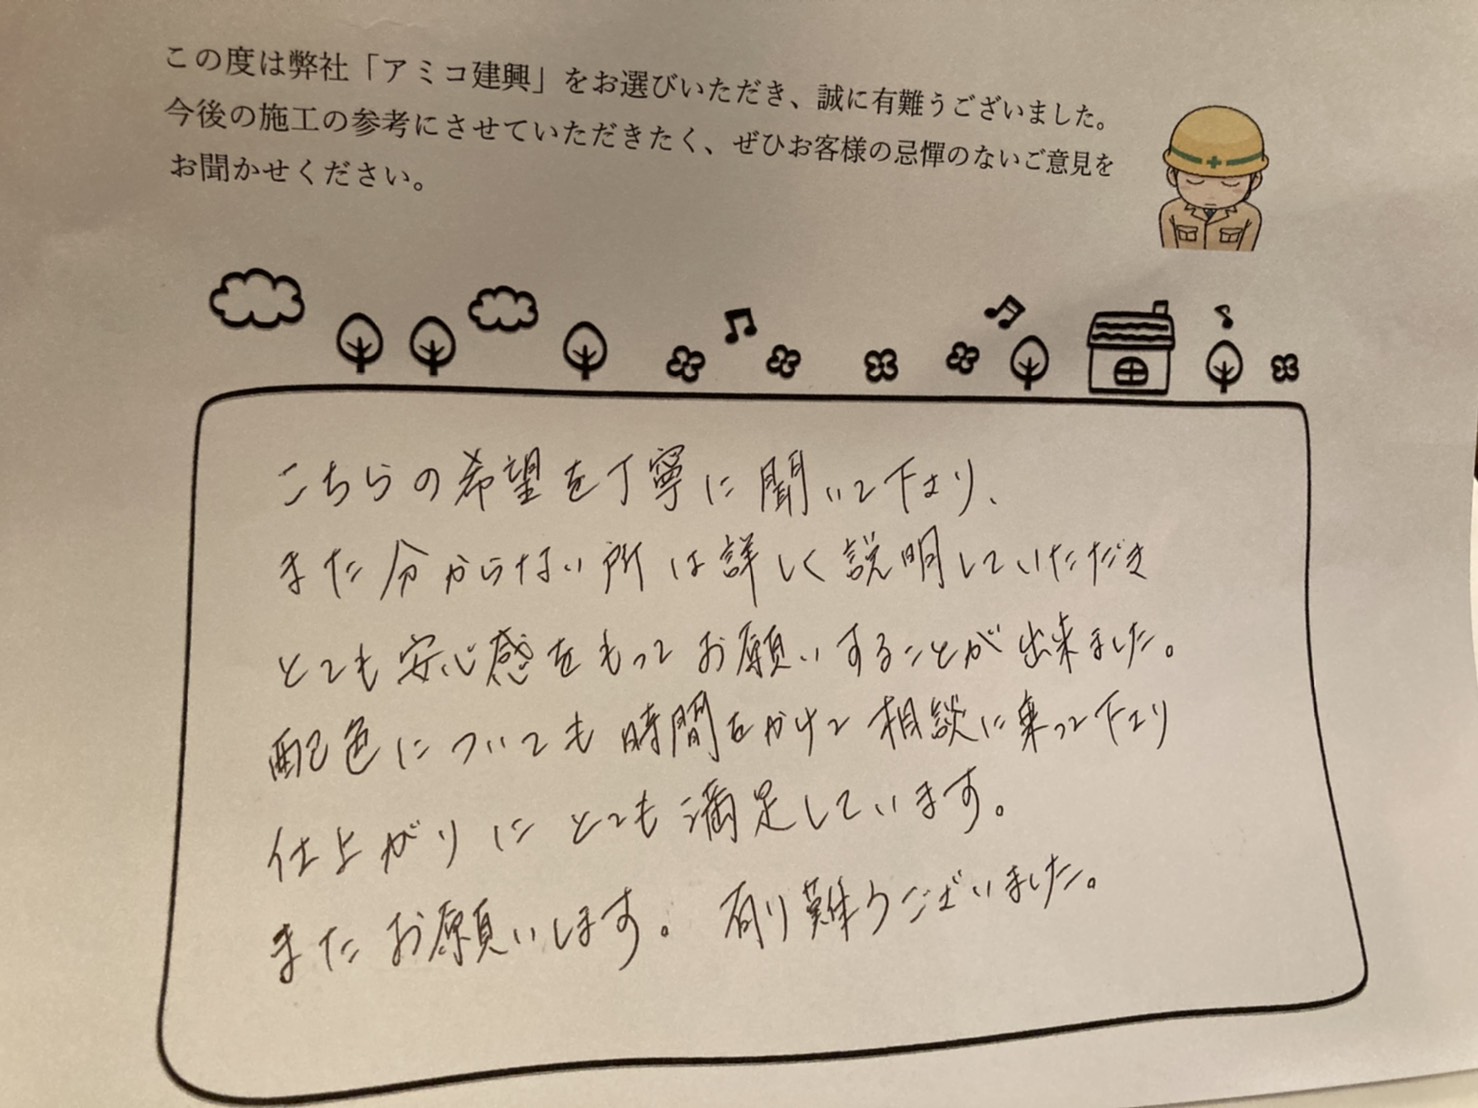 この度は弊社「アミコ建興」をお選びいただき、誠に有難うございました。
今後の施工の参考にさせていただきたく、ぜひお客様の忌憚のないご意見を
お聞かせください。
こちらの希望を丁寧に聞いて下さり、
また分からない所は詳しく説明していただき
とても安心感をもってお願いすることが出来ました。
配色についても時間をかけて相談に乗って下さり
仕上がりにとても満足しています。
またお願いします。有り難うございました。